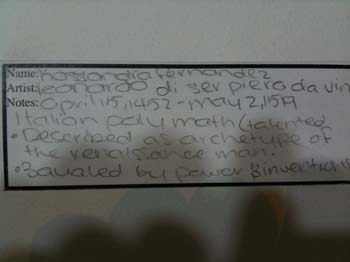 Name: Kassandra Fernandez
Artist: leonardo di ser piero da vin
Notes: April 15, 1452 - may 2, 1519
Italian poly math (talented.
• Described as archetype of
the renaissance man.
• by power & inventions